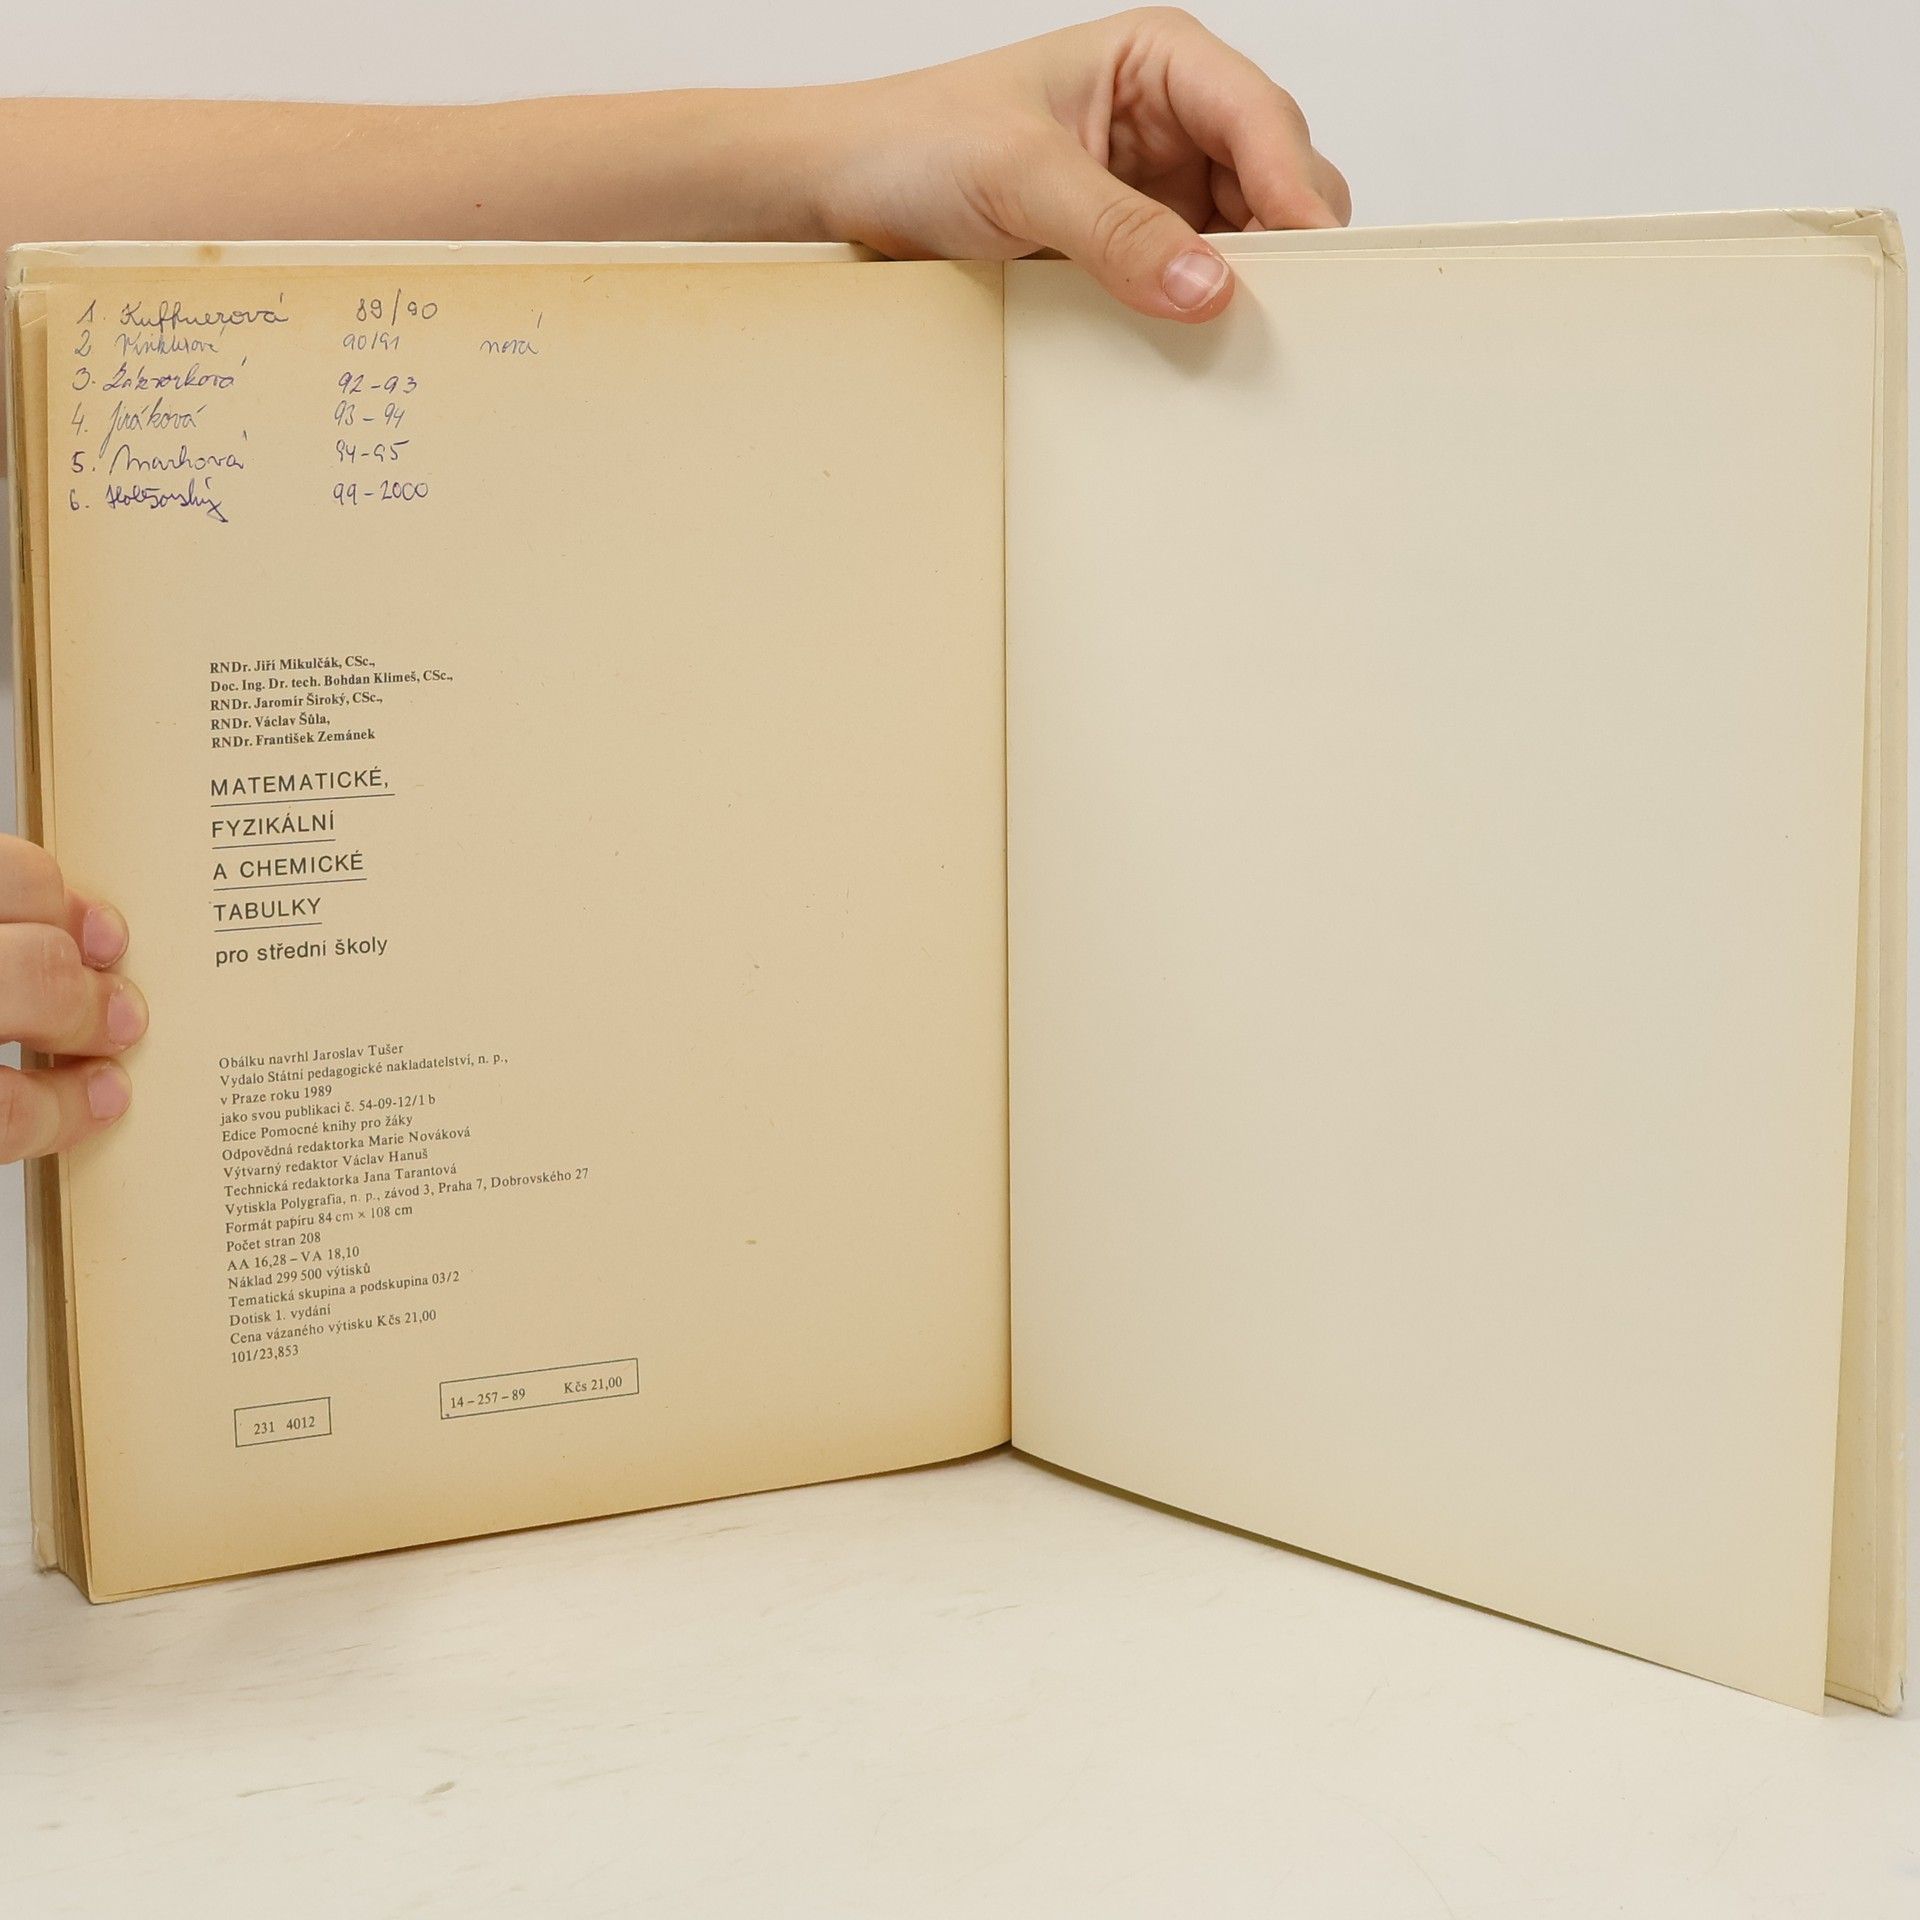 1. Kuffnerová 89/90
2 Vinklerová 90/91 nová
3. Zázvorková 92-93
4. Jiráková 93-94
5. Markova 94-95
6. 99-2000
RNDr. Jiří Mikulčák, CSc.,
Doc. Ing. Dr. tech. Bohdan Klimeš, CSc.,
RNDr. Jaromír Široký, CSc.,
RNDr. Václav Šůla,
RNDr. František Zemánek
MATEMATICKÉ,
FYZIKÁLNÍ
A CHEMICKÉ
TABULKY
pro střední školy
Obálku navrhl Jaroslav Tušer
Vydalo Státní pedagogické nakladatelství, n. p.,
v Praze roku 1989
jako svou publikaci č. 54-09-12/1 b
Edice Pomocné knihy pro žáky
Odpovědná redaktorka Marie Nováková
Výtvarný redaktor Václav Hanuš
Technická redaktorka Jana Tarantová
Vytiskla Polygrafia, n. p., závod 3, Praha 7, Dobrovského 27
Formát papíru 84 cm × 108 cm
Počet stran 208
AA 16,28 – VA 18,10
Náklad 299 500 výtisků
Tematická skupina a podskupina 03/2
Dotisk 1. vydání
Cena vázaného výtisku Kčs 21,00
101/23,853
231 4012
14 – 257 – 89 Kčs 21,00